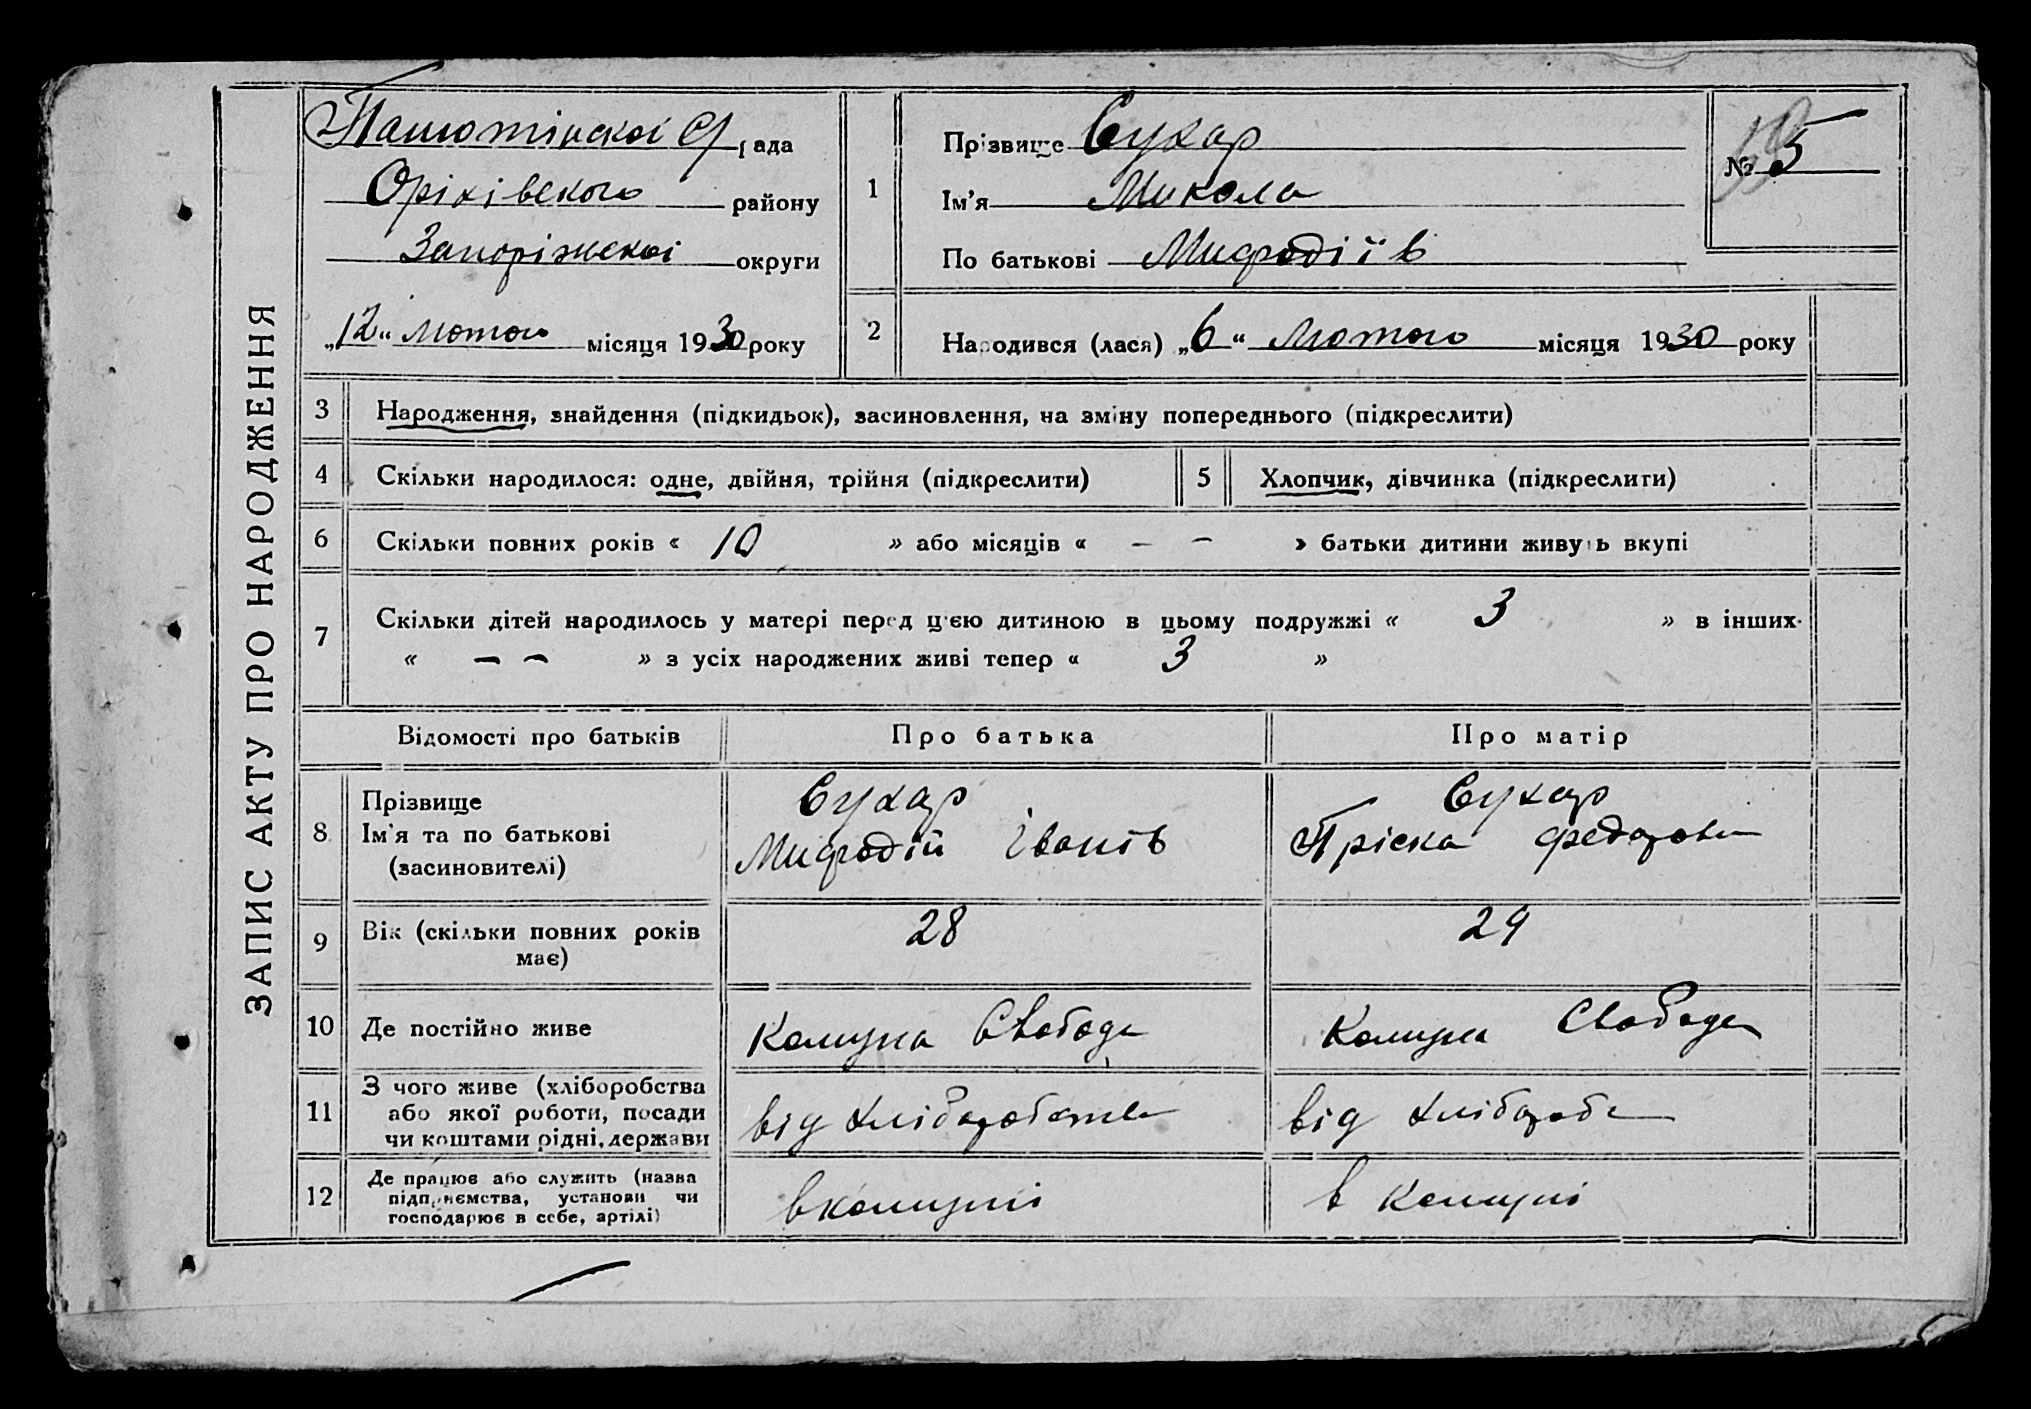 ЗАПИС АКТУ ПРО НАРОДЖЕННЯ
рада
Оріхівського району
Запоріжскої округи
„12“ лютого місяця 1930 року
1
Прізвище Сухар
Ім'я Микола
По батькові Мифодіїв
№ 5
2
Народився (лася) „6“ лютого місяця 1930 року
3 Народження, знайдення (підкидьок), засиновлення, на зміну попереднього (підкреслити)
4 Скільки народилося: одне, двійня, трійня (підкреслити)
5 Хлопчик, дівчинка (підкреслити)
6 Скільки повних років « 10 » або місяців « – – » батьки дитини живуть вкупі
7 Скільки дітей народилось у матері перед цією дитиною в цьому подружжі « 3 » в інших
« – – » з усіх народжених живі тепер « 3 »
Відомості про батьків Про батька Про матір
8 Прізвище
Ім'я та по батькові
(засиновителі)
Сухар
Мифодій Іванів
Сухар
Пріска Федорова
9 Вік (скільки повних років
має)
28
29
10 Де постійно живе
Комуна Свобода
Комуна Свобода
11 З чого живе (хліборобства
або якої роботи, посади
чи коштами рідні, держави
від хліборобства
від хлібороб
12 Де працює або служить (назва
підприємства, установи чи
господарює в себе, артілі)
в комуні
в комуні